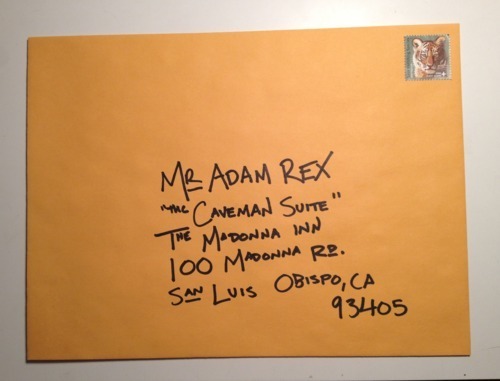 MR ADAM REX
"THE CAVEMAN SUITE"
THE MADONNA INN
100 MADONNA RD.
SAN LUIS OBISPO, CA
93405